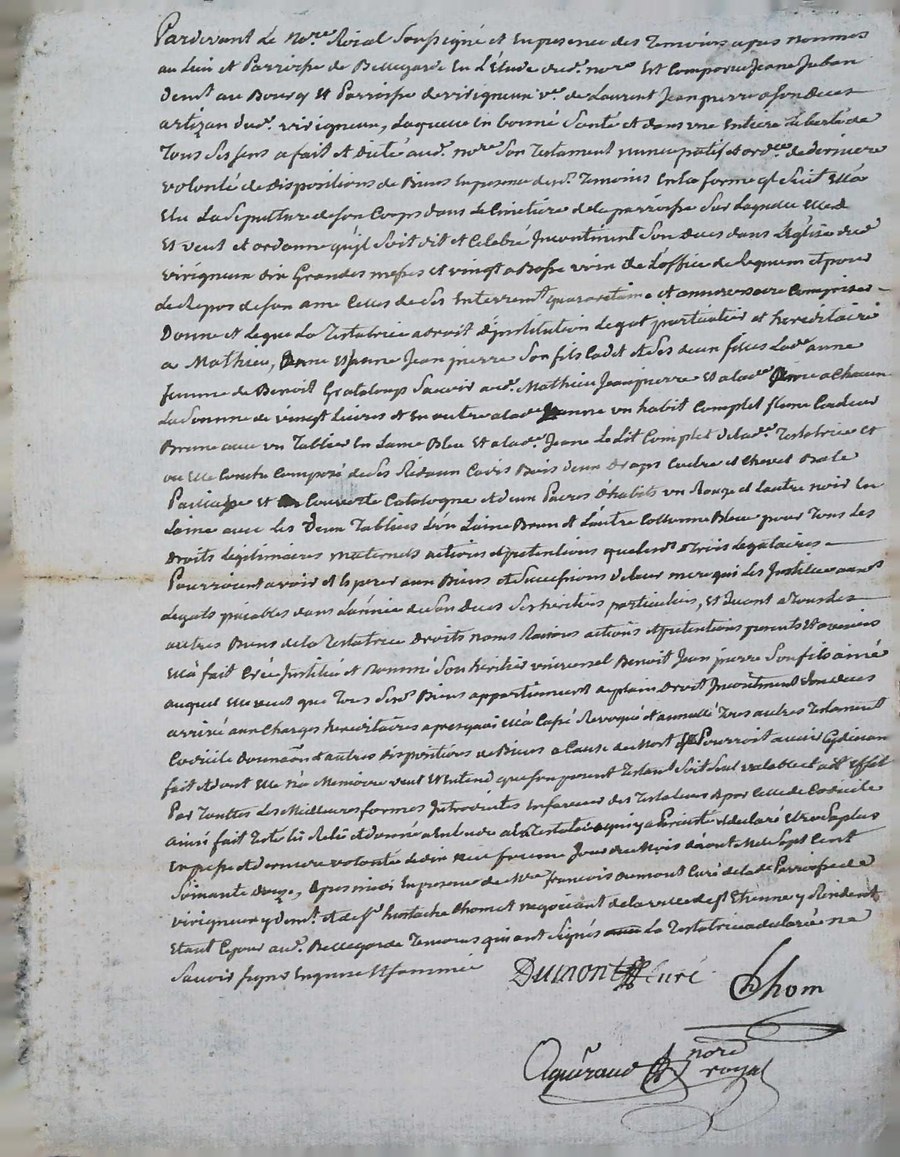 Pardevant Le nore. Roial Soussigné et En presence des Temoins apres nommes
au Lieu et Parroisse de Bellegarde En L'étude dud. nore. Est Comparu Jeane
demt. au Bourg Et Parroisse de virigneux ve. de Laurent Jeanpierre a son deces
artizan dud. virigneux, Laquelle En bonne Santé et dans une Entiere Liberté de
Tous Ses sens a fait et dicté aud. nore Son Testament nuncupatif et ordce. de derniere
volonté de dispositions de Biens En presence desd. Temoins En la forme q Suit Ella
Elu La Sepulture de Son Corps dans Le Cimetiere de la parroisse Sur Laquelle Elle
Et veut et ordonne quil Soit dit et Celebré Incontinent Son deces dans L'Eglise dud
virigneux dix Grandes messes et vingt a Basse voix de L'office de Requiem et pour
Le Repos de Son ame Celles de Ses Enterremt. quarantaine et anniversaire Comprises
Donne et Legue La Testatrice a droit d'institution Legat particulier et hereditaire
a Mathieu, anne et Jeanne Jeanpierre Son fils Cadet et Ses deux filles Lade anne
femme de Benoit Grataloup Savoir aud. Mathieu Jeanpierre Et a lade anne a Chacun
La Somme de vingt Livres Et En outre a lade anne un habit Complet Couleur
Brune avec un Tablier En Laine Bleu Et a lade. Jeane Le Lit Complet de lad. Testatrice et
ou Elle Couche Composé de Ses Rideaux Bois deux Draps Coetre et Chevet Bale
Paillasse et Couverte Catalogne et deux Paires d'habits un Rouge et Lautre noir En
Laine avec Les Deux Tabliers L'un Laine Brun et L'autre Cottonne Bleu pour Tous Les
Droits Legitimaires maternels actions et pretentions que Lesd. Trois Legataires
Pourroient avoir et Esperer aux Biens et Successions de Leur mere qui Les Institue auxd.
Legats paiables dans L'année de Son deces Ses heritiers particuliers, et Quant a Tous Les
autres Biens de la Testatrice Droits noms Raisons actions et pretentions presents Et avenirs
Ella fait Créé Institué et Nommé Son heritier universel Benoit Jeanpierre Son fils ainé
auquel Elle veut que Tous Sesd. Biens appartiennent a plain Droit Incontinent Son deces
arrivé aux Charges hereditaires apres quoi Ella Cassé Revoqué et annullé Tous autres Testament
Codicile donnaon. et autres dispositions de Biens a Cause de Mort qu'Elle Pourroit avoir Cydevant
fait et dont Elle n'a Memoire veut Et Entend que Son present Testamt. Soit Seul valable
Par Touttes Les Meilleures formes Introduites En faveur des Testateurs Et par Celle de Codicile
ainsi fait Testé Lû Relû et donné a Entendre a la Testatrice qui y a Persisté et declaré Etre Sa plus
Expresse et derniere volonté Jour du Mois d'aout Mil Sept Cent
Soixante Douze, apres midi En presence de Mre. François Dumont Curé de lade Parroisse de
virigneux y demt. et de Sr. Eustache Chomet negociant de la ville de St Etienne y Residant
Etant Ce jour aud. Bellegarde Temoins qui ont Signés La Testatrice a declaré ne
Savoir Signer Enquise Et Sommée
Dumont Curé
Chom
nore
royal